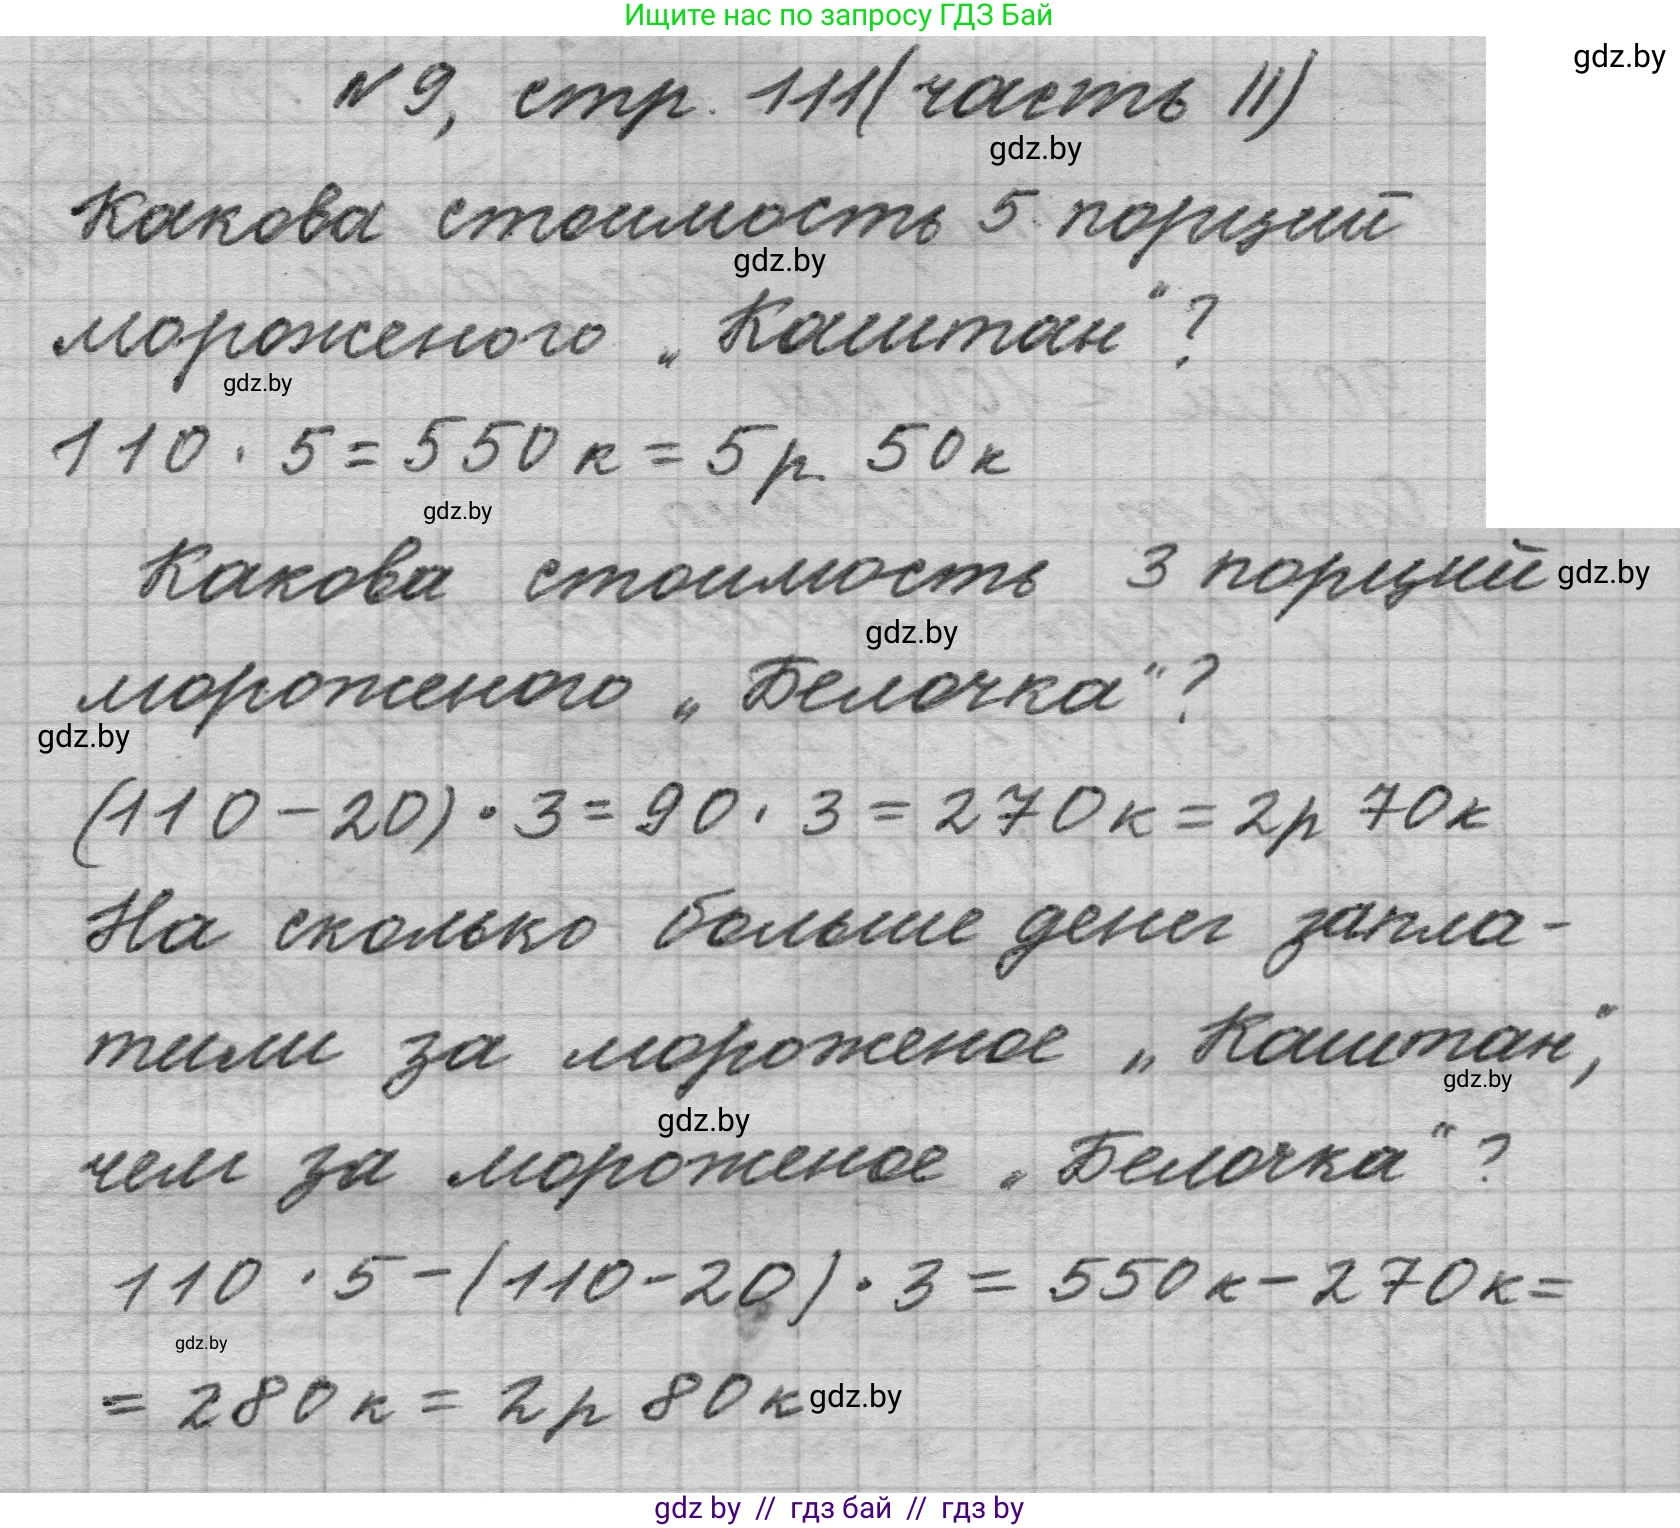 Ищите нас по запросу ГДЗ Бай
gdz.by
№9, стр. 111 (часть II)
gdz.by
Какова стоимость 5 порций
gdz.by
мороженого „Каштан“?
gdz.by
110 · 5 = 550 к = 5 р 50 к
gdz.by
Какова стоимость 3 порций
gdz.by
gdz.by
мороженого „Белочка“?
gdz.by
(110 – 20) · 3 = 90 · 3 = 270 к = 2 р 70 к
На сколько больше денег запла-
тили за мороженое „Каштан“,
gdz.by
gdz.by
чем за мороженое „Белочка“?
110 · 5 – (110 – 20) · 3 = 550 к – 270 к =
gdz.by
= 280 к = 2 р 80 к
gdz.by
gdz by // гдз бай // гдз by